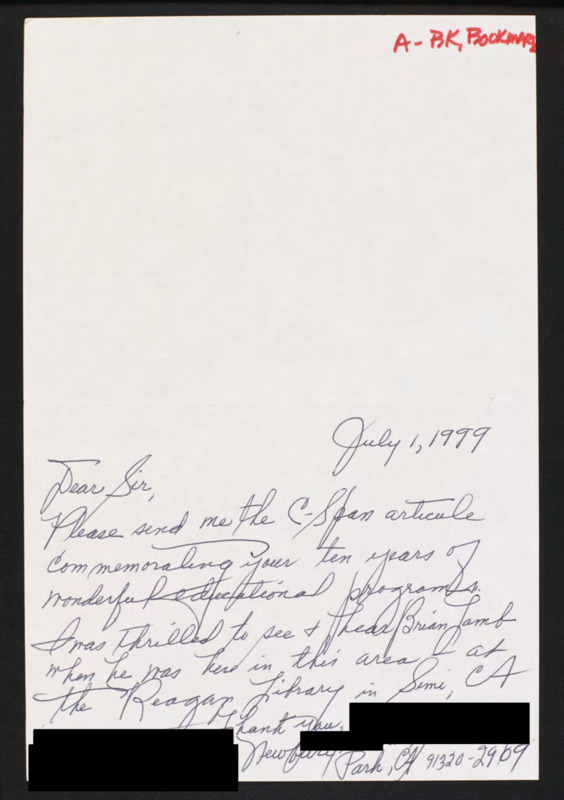 A - BK, BOOKMARK
July 1, 1999
Dear Sir,
Please send me the C-Span articule
commemorating your ten years of
wonderful educational programs.
I was thrilled to see & hear Brian Lamb
when he was here in this area at
the Reagan Library in Simi, CA
Thank you,
Newbury
Park, CA 91320-2909